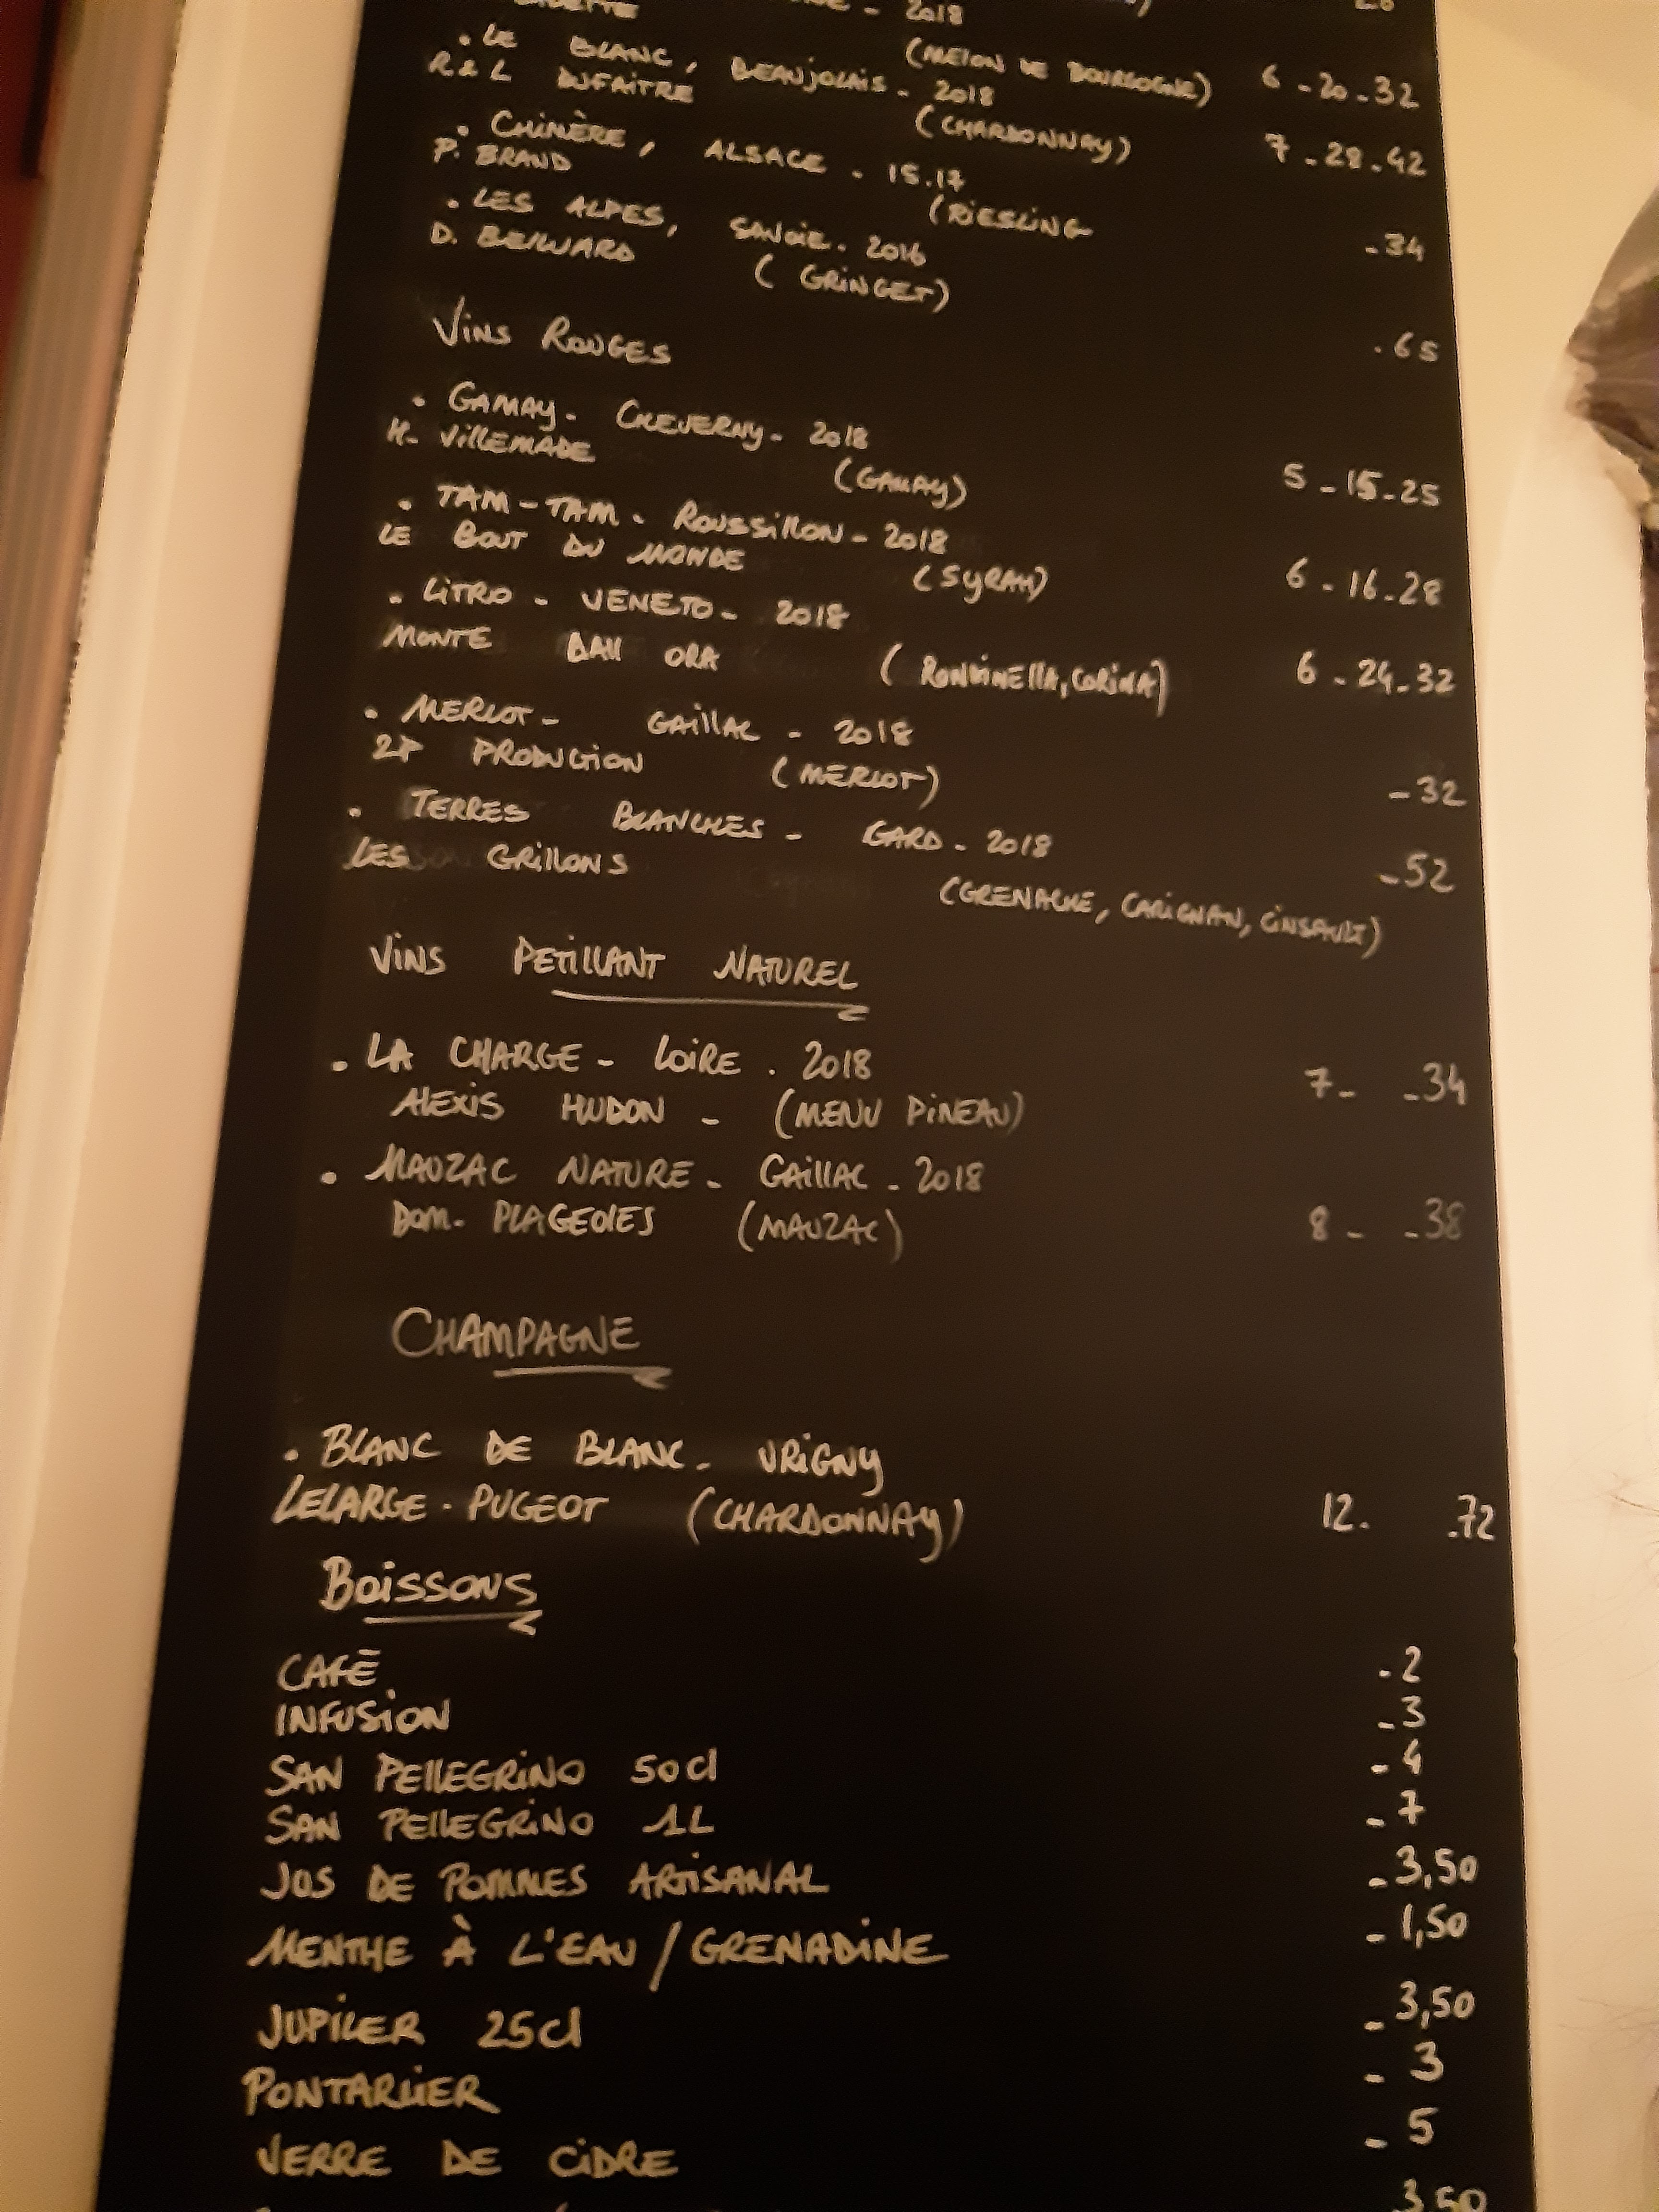 - 2018
(MELON DE BOURGOGNE) 6 - 20 - 32
. LE BLANC, BEAUJOLAIS - 2018
R & L DUFAITRE (CHARDONNAY) 7 - 28 - 42
. CHIMÈRE, ALSACE - 15.17
P. BRAND (RIESLING - 34
. LES ALPES, SAVOIE. 2016
D. BELWARD (GRINGET) . 65
VINS ROUGES
. GAMAY - CHEVERNY - 2018
H. VILLEMADE (GAMAY) 5 - 15 - 25
. TAM-TAM. ROUSSILLON - 2018
LE BOUT DU MONDE (SYRAH) 6 - 16 - 28
. LITRO - VENETO - 2018
MONTE DALL ORA (RONDINELLA, CORINA) 6 - 24 - 32
. MERLOT - GAILLAC - 2018
2P PRODUCTION (MERLOT) - 32
. TERRES BLANCHES - GARD - 2018
LES GRILLONS - 52
(GRENACHE, CARIGNAN, CINSAULT)
VINS PETILLANT NATUREL
. LA CHARGE - LOIRE . 2018 7 - - 34
ALEXIS HUDON - (MENU PINEAU)
. MAUZAC NATURE - GAILLAC - 2018
DOM. PLAGEOLES (MAUZAC) 8 - - 38
CHAMPAGNE
. BLANC DE BLANC - VRIGNY
LELARGE - PUGEOT (CHARDONNAY) 12. .72
BOISSONS
CAFÉ - 2
INFUSION - 3
SAN PELLEGRINO 50cl - 4
SAN PELLEGRINO 1L - 7
JUS DE POMMES ARTISANAL - 3,50
MENTHE À L'EAU / GRENADINE - 1,50
JUPILER 25cl - 3,50
PONTARLIER - 3
VERRE DE CIDRE - 5
3,50